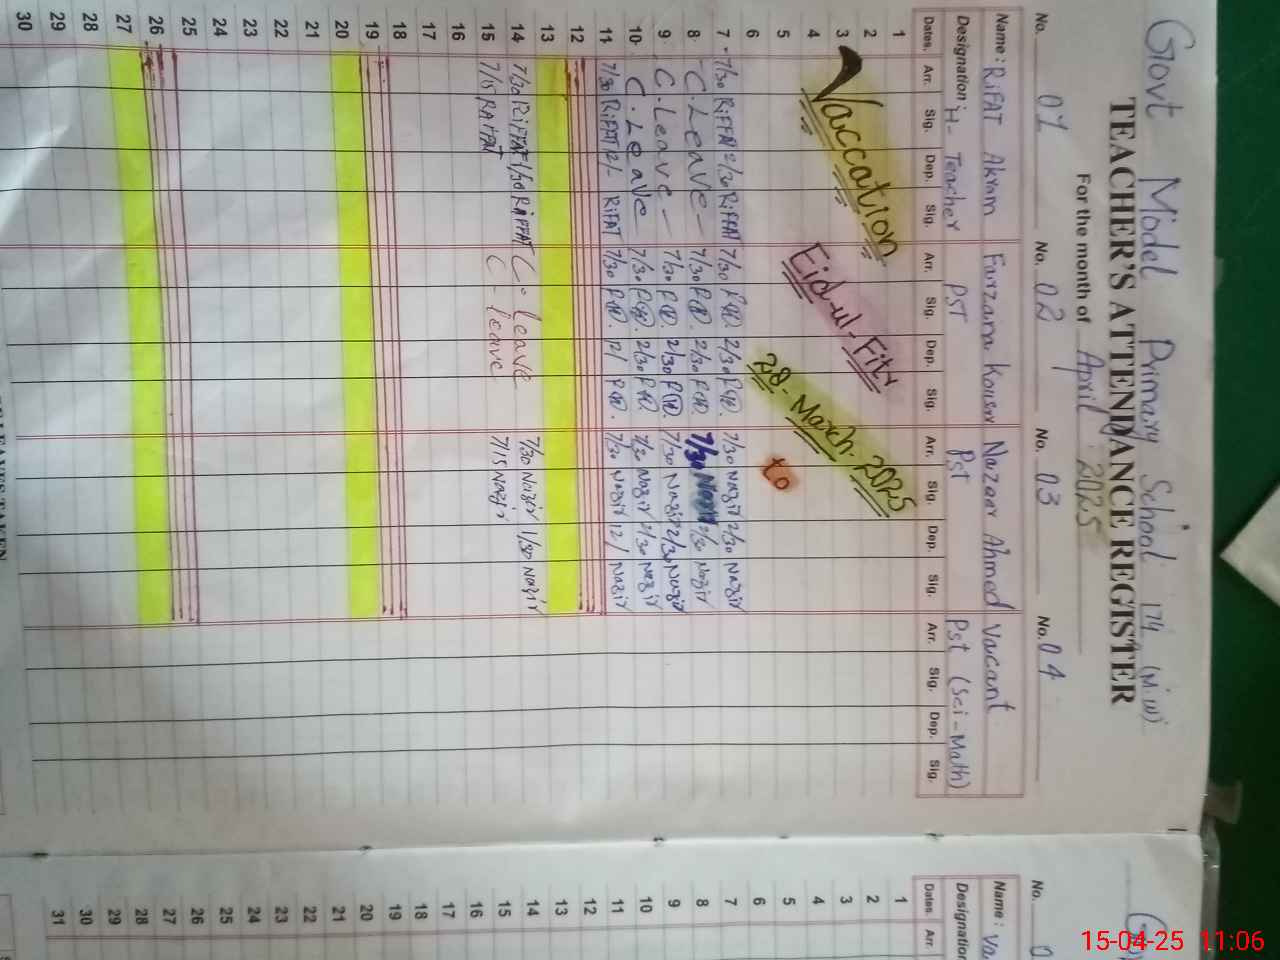 Govt Model Primary School 174 (M.W)
TEACHER'S ATTENDANCE REGISTER
For the month of April 2025
No. 01 No. 02 No. 03 No. 04
Name: RiFAT Akram Farzana Kouser Nazeer Ahmed Vacant
Designation: H- Teacher PST Pst Pst (Sci-Math)
Dates. Arr. Sig. Dep. Sig. Arr. Sig. Dep. Sig. Arr. Sig. Dep. Sig. Arr. Sig. Dep. Sig.
1
2
3
4
5
6
Vaccation
Eid-ul-Fitr
28- March. 2025
to
7 7/30 RiFFAT 2/30 RiFFAT 7/30 2/30 7/30 Nazir 2/30 Nazir
8 C. Leave 7/30 2/30 7/30 Nazir 2/30 Nazir
9 C. Leave 7/30 2/30 7/30 Nazir 2/30 Nazir
10 C. Leave 7/30 2/30 7/30 Nazir 2/30 Nazir
11 7/30 RiFFAT 12/- RiFAT 7/30 12/ 7/30 Nazir 12/ Nazir
12
13
14 7/30 RiFFAT 1/30 RiFFAT C. leave 7/30 Nazir 1/30 Nazir
15 7/15 RAFFAT C- leave 7/15 Nazir
16
17
18
19
20
21
22
23
24
25
26
27
28
29
30
No.
Name: Va
Designation
Dates. Arr.
1
2
3
4
5
6
7
8
9
10
11
12
13
14
15
16
17
18
19
20
21
22
23
24
25
26
27
28
29
30
31
15-04-25 11:06